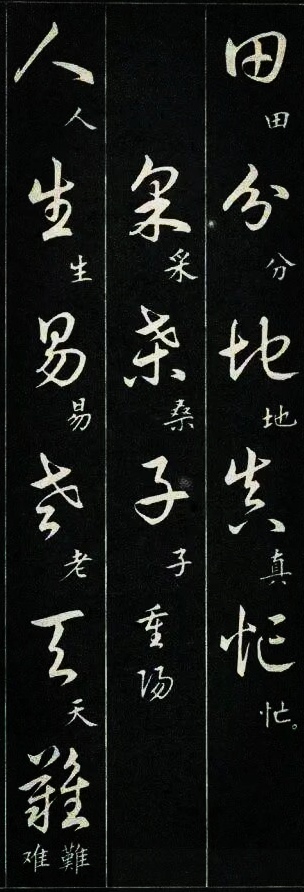 田分地真忙
田分地真忙。
采桑子
采桑子
重陽
人生易老天難
人生易老天難
难